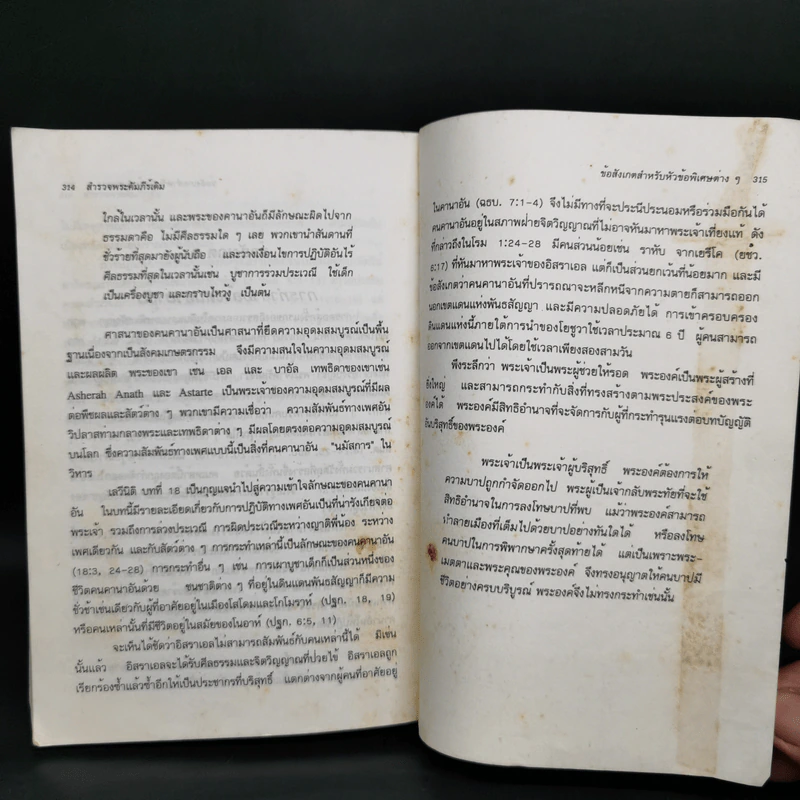 314 สำรวจพระคัมภีร์เดิม
ใกล้ในเวลานั้น และพระของคานาอันก็มีลักษณะผิดไปจาก
ธรรมดาคือ ไม่มีศีลธรรมใด ๆ เลย พวกเขานำสันดานที่
ชั่วร้ายที่สุดมายังผู้นับถือ และวางเงื่อนไขการปฏิบัติอันไร้
ศีลธรรมที่สุดในเวลานั้นเช่น บูชาการร่วมประเวณี ใช้เด็ก
เป็นเครื่องบูชา และกราบไหว้งู เป็นต้น
ศาสนาของคนคานาอันเป็นศาสนาที่ยึดความอุดมสมบูรณ์เป็นพื้น
ฐานเนื่องจากเป็นสังคมเกษตรกรรม จึงมีความสนใจในความอุดมสมบูรณ์
และผลผลิต พระของเขา เช่น เอล และ บาอัล เทพธิดาของเขาเช่น
Asherah Anath และ Astarte เป็นพระเจ้าของความอุดมสมบูรณ์ที่มีผล
ต่อพืชผลและสัตว์ต่าง ๆ พวกเขามีความเชื่อว่า ความสัมพันธ์ทางเพศอัน
วิปลาสท่ามกลางพระและเทพธิดาต่าง ๆ มีผลโดยตรงต่อความอุดมสมบูรณ์
บนโลก ซึ่งความสัมพันธ์ทางเพศแบบนี้เป็นสิ่งที่คนคานาอัน "นมัสการ" ใน
วิหาร
เลวีนิติ บทที่ 18 เป็นกุญแจนำไปสู่ความเข้าใจลักษณะของคนคานา
อัน ในบทนี้มีรายละเอียดเกี่ยวกับการปฏิบัติทางเพศอันเป็นที่น่ารังเกียจต่อ
พระเจ้า รวมถึงการล่วงประเวณี การผิดประเวณีระหว่างญาติพี่น้อง ระหว่าง
เพศเดียวกัน และกับสัตว์ต่าง ๆ การกระทำเหล่านี้เป็นลักษณะของคนคานาอัน
(18:3, 24-28) การกระทำอื่น ๆ เช่น การเผาบูชาเด็กก็เป็นส่วนหนึ่งของ
ชีวิตคนคานาอันด้วย ชนชาติต่าง ๆ ที่อยู่ในดินแดนพันธสัญญาก็มีความ
ชั่วช้าเช่นเดียวกับผู้ที่อาศัยอยู่ในเมืองโสโดมและโกโมราห์ (ปฐก. 18, 19)
หรือคนเหล่านั้นที่มีชีวิตอยู่ในสมัยของโนอาห์ (ปฐก. 6:5, 11)
จะเห็นได้ชัดว่าอิสราเอลไม่สามารถสัมพันธ์กับคนเหล่านี้ได้ มิเช่น
นั้นแล้ว อิสราเอลจะได้รับศีลธรรมและจิตวิญญาณที่ป่วยไข้ อิสราเอลถูก
เรียกร้องซ้ำแล้วซ้ำอีกให้เป็นประชากรที่บริสุทธิ์ แตกต่างจากผู้คนที่อาศัยอยู่
ข้อสังเกตสำหรับหัวข้อพิเศษต่าง ๆ 315
ในคานาอัน (ฉธบ. 7:1-4) จึงไม่มีทางที่จะประนีประนอมหรือร่วมมือกันได้
คนคานาอันอยู่ในสภาพฝ่ายจิตวิญญาณที่ไม่อาจหันมาหาพระเจ้าเที่ยงแท้ ดัง
ที่กล่าวถึงในโรม 1:24-28 มีคนส่วนน้อยเช่น ราหับ จากเยรีโค (ยชว.
6:17) ที่หันมาหาพระเจ้าของอิสราเอล แต่ก็เป็นส่วนยกเว้นที่น้อยมาก และมี
ข้อสังเกตว่าคนคานาอันที่ปรารถนาจะหลีกหนีจากความตายก็สามารถออก
นอกเขตแดนแห่งพันธสัญญา และมีความปลอดภัยได้ การเข้าครอบครอง
ดินแดนแห่งนี้ภายใต้การนำของโยชูวาใช้เวลาประมาณ 6 ปี ผู้คนสามารถ
ออกจากเขตแดนไปได้โดยใช้เวลาเพียงสองสามวัน
พึงระลึกว่า พระเจ้าเป็นพระผู้ช่วยให้รอด พระองค์เป็นพระผู้สร้างที่
ยิ่งใหญ่ และสามารถกระทำกับสิ่งที่ทรงสร้างตามพระประสงค์ของพระ
องค์ได้ พระองค์มีสิทธิอำนาจที่จะจัดการกับผู้ที่กระทำรุนแรงต่อบทบัญญัติ
อันบริสุทธิ์ของพระองค์
พระเจ้าเป็นพระเจ้าผู้บริสุทธิ์ พระองค์ต้องการให้
ความบาปถูกกำจัดออกไป พระผู้เป็นเจ้ากลับพระทัยที่จะใช้
สิทธิอำนาจในการลงโทษบาปที่พบ แม้ว่าพระองค์สามารถ
ทำลายเมืองที่เต็มไปด้วยบาปอย่างทันใดได้ หรือลงโทษ
คนบาปในการพิพากษาครั้งสุดท้ายได้ แต่เป็นเพราะพระ-
เมตตาและพระคุณของพระองค์ จึงทรงอนุญาตให้คนบาปมี
ชีวิตอย่างครบบริบูรณ์ พระองค์จึงไม่ทรงกระทำเช่นนั้น